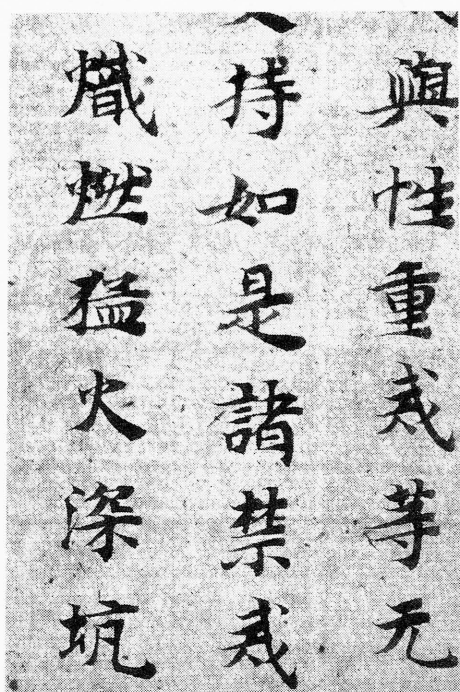 與性重戒等无
持如是諸禁戒
熾燃猛火深坑